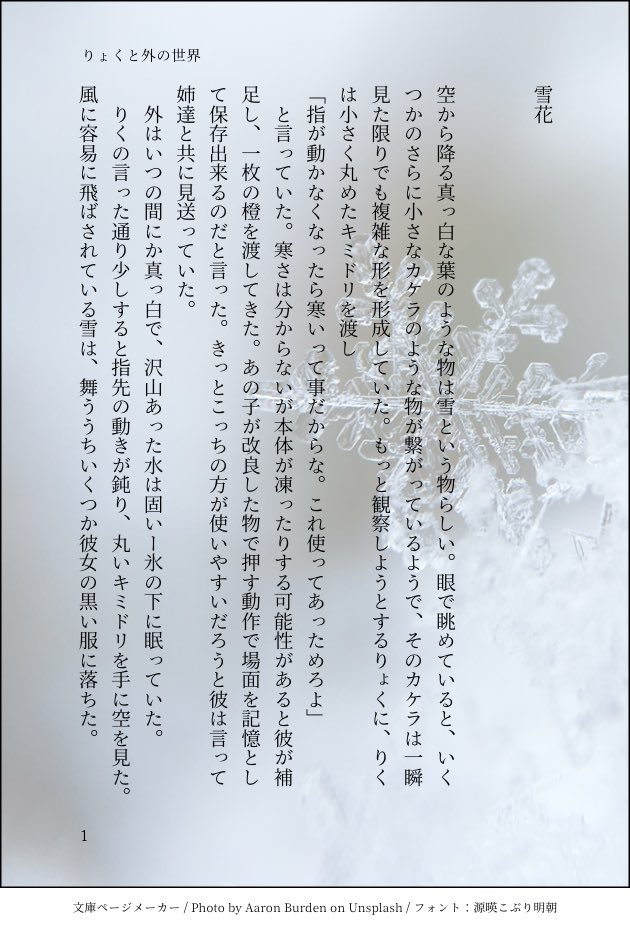 りょくと外の世界
雪花
空から降る真っ白な葉のような物は雪という物らしい。眼で眺めていると、いく
つかのさらに小さなカケラのような物が繋がっているようで、そのカケラは一瞬
見た限りでも複雑な形を形成していた。もっと観察しようとするりょくに、りく
は小さく丸めたキミドリを渡し
「指が動かなくなったら寒いって事だからな。これ使ってあっためろよ」
と言っていた。寒さは分からないが本体が凍ったりする可能性があると彼が補
足し、一枚の橙を渡してきた。あの子が改良した物で押す動作で場面を記憶とし
て保存出来るのだと言った。きっとこっちの方が使いやすいだろうと彼は言って
姉達と共に見送っていた。
外はいつの間にか真っ白で、沢山あった水は固いー氷の下に眠っていた。
りくの言った通り少しすると指先の動きが鈍り、丸いキミドリを手に空を見た。
風に容易に飛ばされている雪は、舞ううちいくつか彼女の黒い服に落ちた。
1
文庫ページメーカー / Photo by Aaron Burden on Unsplash / フォント：源暎こぶり明朝